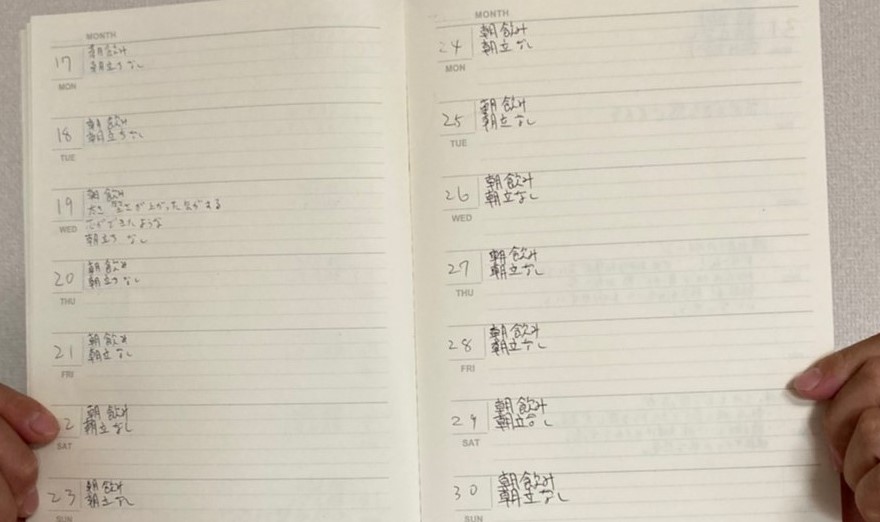 MONTH
17
朝飲み
朝立ちなし
MON
18
朝飲み
朝立ちなし
TUE
19
朝飲み
堅さが上がった気がする
芯ができたような
朝立ち なし
WED
20
朝飲み
朝立ちなし
THU
21
朝飲み
朝立なし
FRI
2
朝飲み
朝立なし
SAT
23
朝飲み
朝立なし
SUN
MONTH
24
朝飲み
朝立なし
MON
25
朝飲み
朝立なし
TUE
26
朝飲み
朝立なし
WED
27
朝飲み
朝立なし
THU
28
朝飲み
朝立なし
FRI
29
朝飲み
朝立なし
SAT
30
朝飲み
朝立なし
SUN